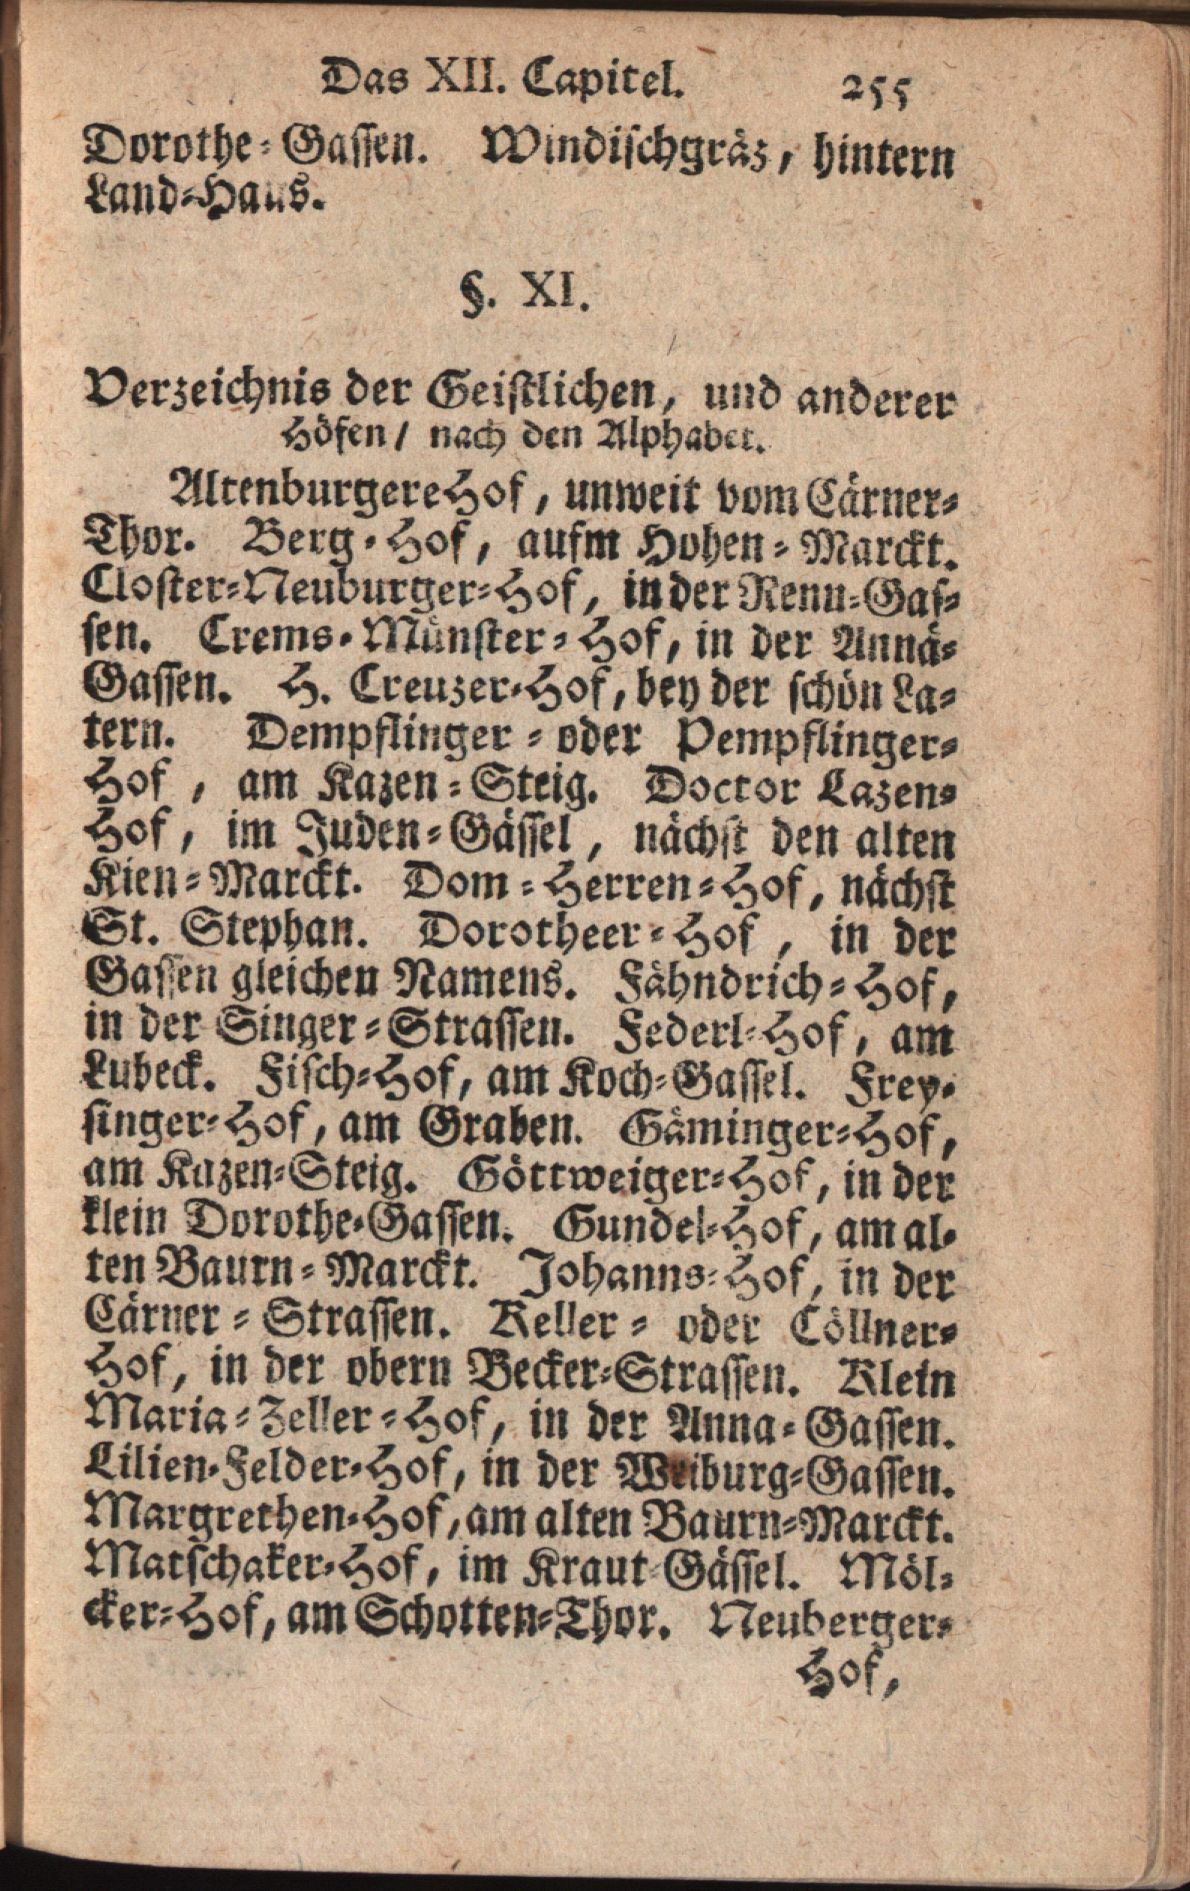 Das XII. Capitel. 255
Dorothe-Gassen. Windischgräz, hintern
Land-Haus.
§. XI.
Verzeichnis der Geistlichen, und anderer
Höfen / nach den Alphabet.
AltenburgereHof, unweit vom Cärner-
Thor. Berg-Hof, aufm Hohen-Marckt.
Closter-Neuburger-Hof, in der Renn-Gas-
sen. Crems-Münster-Hof, in der Annä-
Gassen. H. Creuzer-Hof, bey der schön La-
tern. Dempflinger- oder Pempflinger-
Hof, am Kazen-Steig. Doctor Lazen-
Hof, im Juden-Gässel, nächst den alten
Kien-Marckt. Dom-Herren-Hof, nächst
St. Stephan. Dorotheer-Hof, in der
Gassen gleichen Namens. Fähndrich-Hof,
in der Singer-Strassen. Federl-Hof, am
Lubeck. Fisch-Hof, am Koch-Gassel. Frey-
singer-Hof, am Graben. Gäminger-Hof,
am Kazen-Steig. Göttweiger-Hof, in der
klein Dorothe-Gassen. Gundel-Hof, am al-
ten Baurn-Marckt. Johanns-Hof, in der
Cärner-Strassen. Keller- oder Cöllner-
Hof, in der obern Becker-Strassen. Klein
Maria-Zeller-Hof, in der Anna-Gassen.
Lilien-Felder-Hof, in der Weiburg-Gassen.
Margrethen-Hof, am alten Baurn-Marckt.
Matschaker-Hof, im Kraut-Gässel. Möl-
cker-Hof, am Schotten-Thor. Neuberger-
Hof,